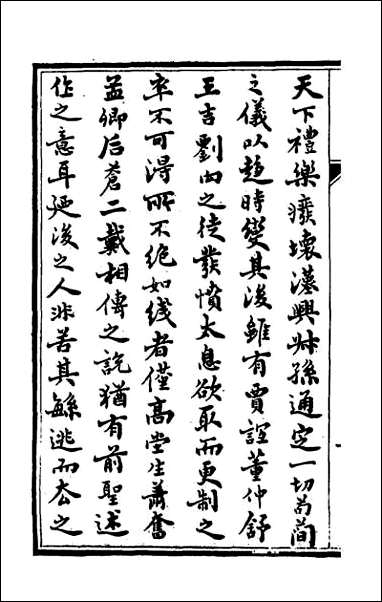 天下禮樂廢壞漢興叔孫通定一切苟簡
之儀以趍時變其後雖有賈誼董仲舒
王吉劉向之徒發憤太息欲取而更制之
率不可得所不絶如綫者僅髙堂生蕭奮
孟卿后蒼二戴相傳之說猶有前聖述
作之意耳延後之人非苦其繇逃而去之